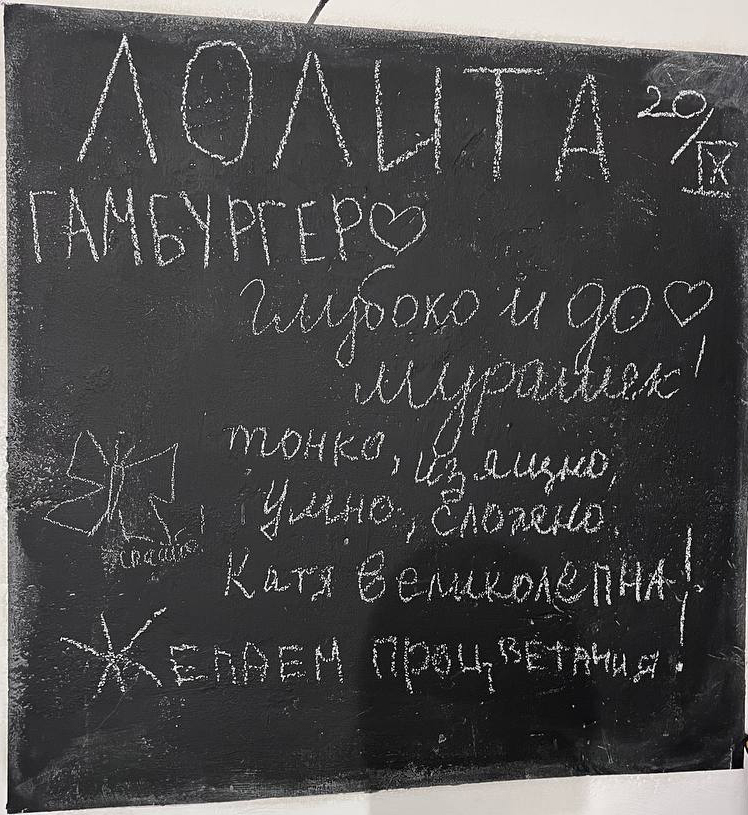 ЛОЛИТА 20/IX
ГАМБУРГЕР♡
глубоко и до♡
мурашек!
тонко, изящно,
Умно, сложно.
спасибо!
Катя великолепна!
Желаем процветания!